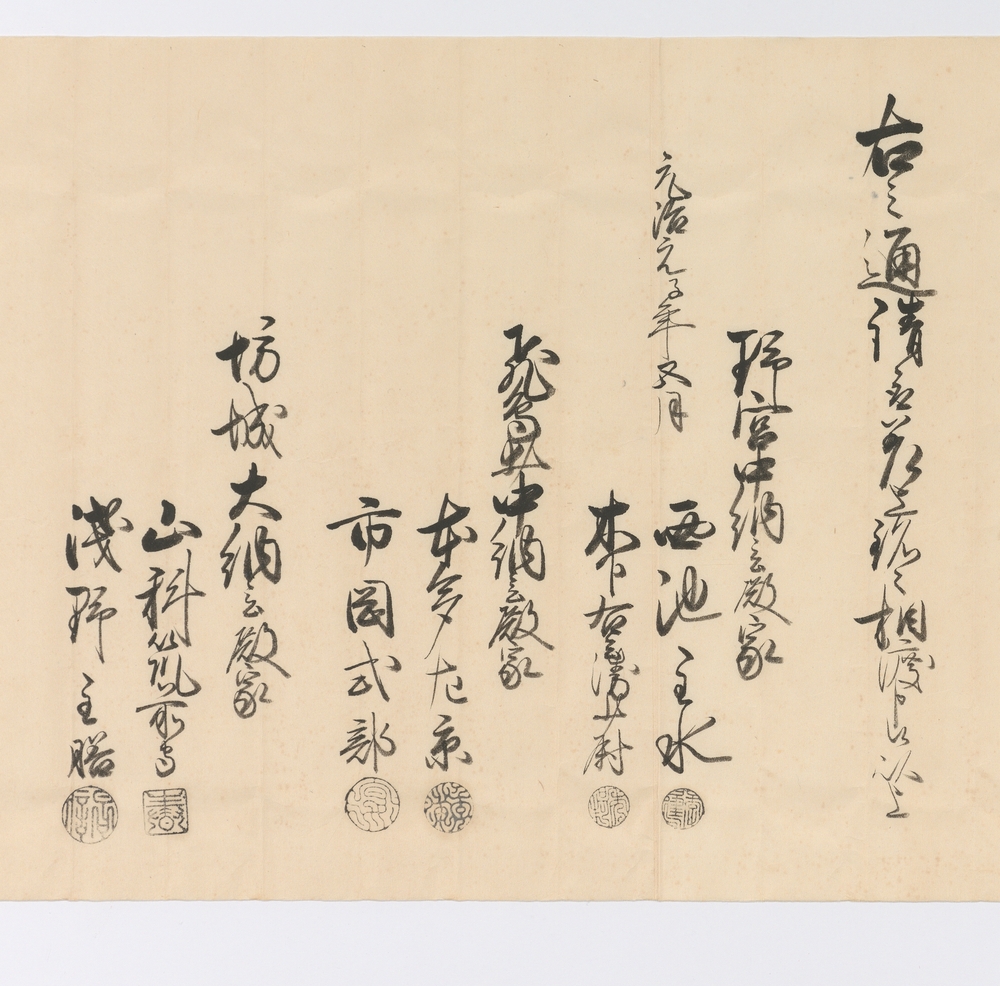 右之通請書差上置之相渡申候以上
元治元子年五月
野宮中納言殿家
西池主水
木下右兵衛少尉
飛鳥井中納言殿家
本多左京
市岡式部
坊城大納言殿家
山科筑前守
浅野主膳